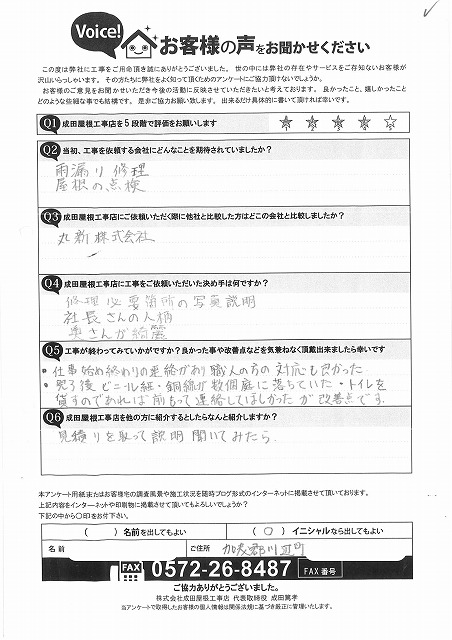 Voice!
お客様の声をお聞かせください
この度は弊社に工事をご用命頂き誠にありがとうございました。世の中には弊社の存在やサービスをご存知ないお客様が
沢山いらっしゃいます。その方たちに弊社をよく知って頂くためのアンケートにご協力頂けないでしょうか。
お客様のご意見をお聞かせいただき今後の活動に反映させていただきたいと考えております。良かったこと、嬉しかったこと
どのような些細な事でも結構です。是非ご協力お願い致します。出来るだけ具体的に書いて頂ければ幸いです。
Q1 成田屋根工事店を5段階で評価をお願いします
Q2 当初、工事を依頼する会社にどんなことを期待されていましたか？
雨漏り修理
屋根の点検
Q3 成田屋根工事店にご依頼いただく際に他社と比較した方はどこの会社と比較しましたか？
丸新株式会社
Q4 成田屋根工事店に工事をご依頼いただいた決め手は何ですか？
修理必要箇所の写真説明
社長さんの人柄
奥さんが綺麗
Q5 工事が終わってみていかがですか？良かった事や改善点などを気兼ねなく頂戴出来ましたら幸いです
・仕事始め終わりの連絡があり職人の方の対応も良かった
・完了後ビニール紐・銅線が数個庭に落ちていた・トイレを
貸すのであれば前もって連絡してほしかったが改善点です.
Q6 成田屋根工事店を他の方に紹介するとしたらなんと紹介しますか？
見積りを取って説明聞いてみたら
本アンケート用紙またはお客様宅の調査風景や施工状況を随時ブログ形式のインターネットに掲載させて頂いております。
上記内容をインターネットや印刷物に掲載させて頂いてもよろしいでしょうか？
下記の中から○印をお付下さい。
（　）名前を出してもよい
（○）イニシャルなら出してもよい
名前
ご住所
加茂郡川辺町
FAX 0572-26-8487 FAX番号
ご協力ありがとうございました。
株式会社成田屋根工事店 代表取締役 成田篤孝
当アンケートで取得したお客様の個人情報は関係法規に基づき厳正に管理いたします。